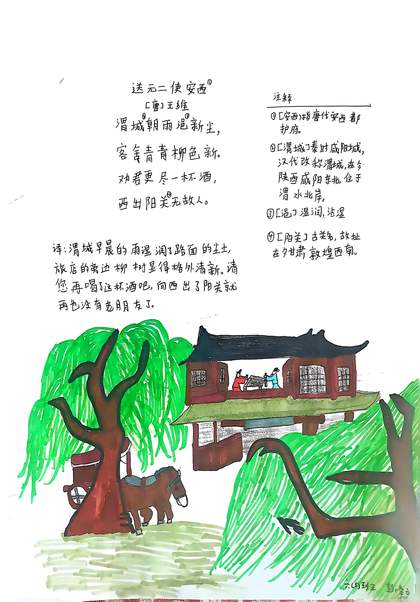 送元二使安西①
[唐]王维
渭城②朝雨浥③新尘，
客舍青青柳色新。
劝君更尽一杯酒，
西出阳关④无故人。
译：渭城早晨的雨湿润了路面的尘土，
旅店的旁边柳树显得格外清新。请
您再喝了这杯酒吧，向西出了阳关就
再也没有老朋友了。
注释
①[安西]指唐代安西都
护府。
②[渭城]秦时咸阳城，
汉代改称渭城，在今
陕西咸阳东北，位于
渭水北岸。
③[浥]湿润，沾湿
④[阳关]古关名，故址
在今甘肃敦煌西南。